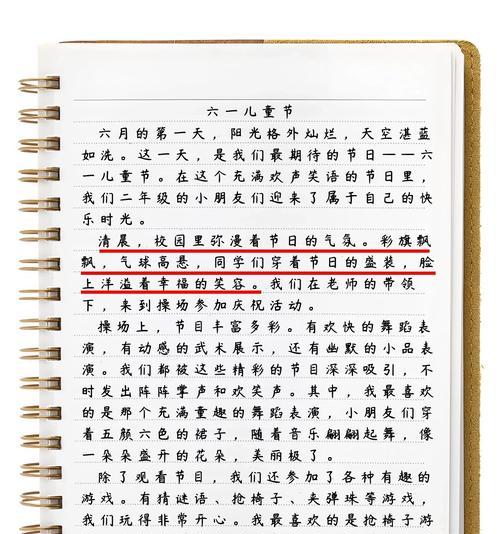 六一儿童节
六月的第一天，阳光格外灿烂，天空湛蓝
如洗。这一天，是我们最期待的节日——六
一儿童节。在这个充满欢声笑语的节日里，
我们二年级的小朋友们迎来了属于自己的快
乐时光。
清晨，校园里弥漫着节日的气氛。彩旗飘
飘，气球高悬，同学们穿着节日的盛装，脸
上洋溢着幸福的笑容。我们在老师的带领
下，来到操场参加庆祝活动。
操场上，节目丰富多彩。有欢快的舞蹈表
演，有动感的武术展示，还有幽默的小品表
演。我们都被这些精彩的节目深深吸引，不
时发出阵阵掌声和欢笑声。其中，我最喜欢
的是那个充满童趣的舞蹈表演，小朋友们穿
着五颜六色的裙子，随着音乐翩翩起舞，像
一朵朵盛开的花朵，美丽极了。
除了观看节目，我们还参加了各种有趣的
游戏。有猜谜语、抢椅子、夹弹珠等游戏，
我们玩得非常开心。我最喜欢的是抢椅子游